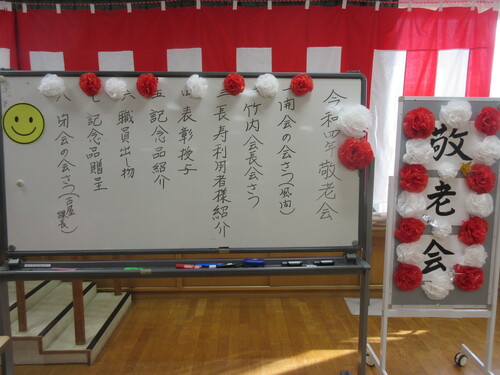 令和四年 敬老会
一 開会の会さつ(風間)
二 竹内会長会さつ
三 長寿利用者様紹介
四 表彰授与
五 記念品紹介
六 職員出し物
七 記念品贈呈
八 閉会の会さつ(古屋課長)
敬老会